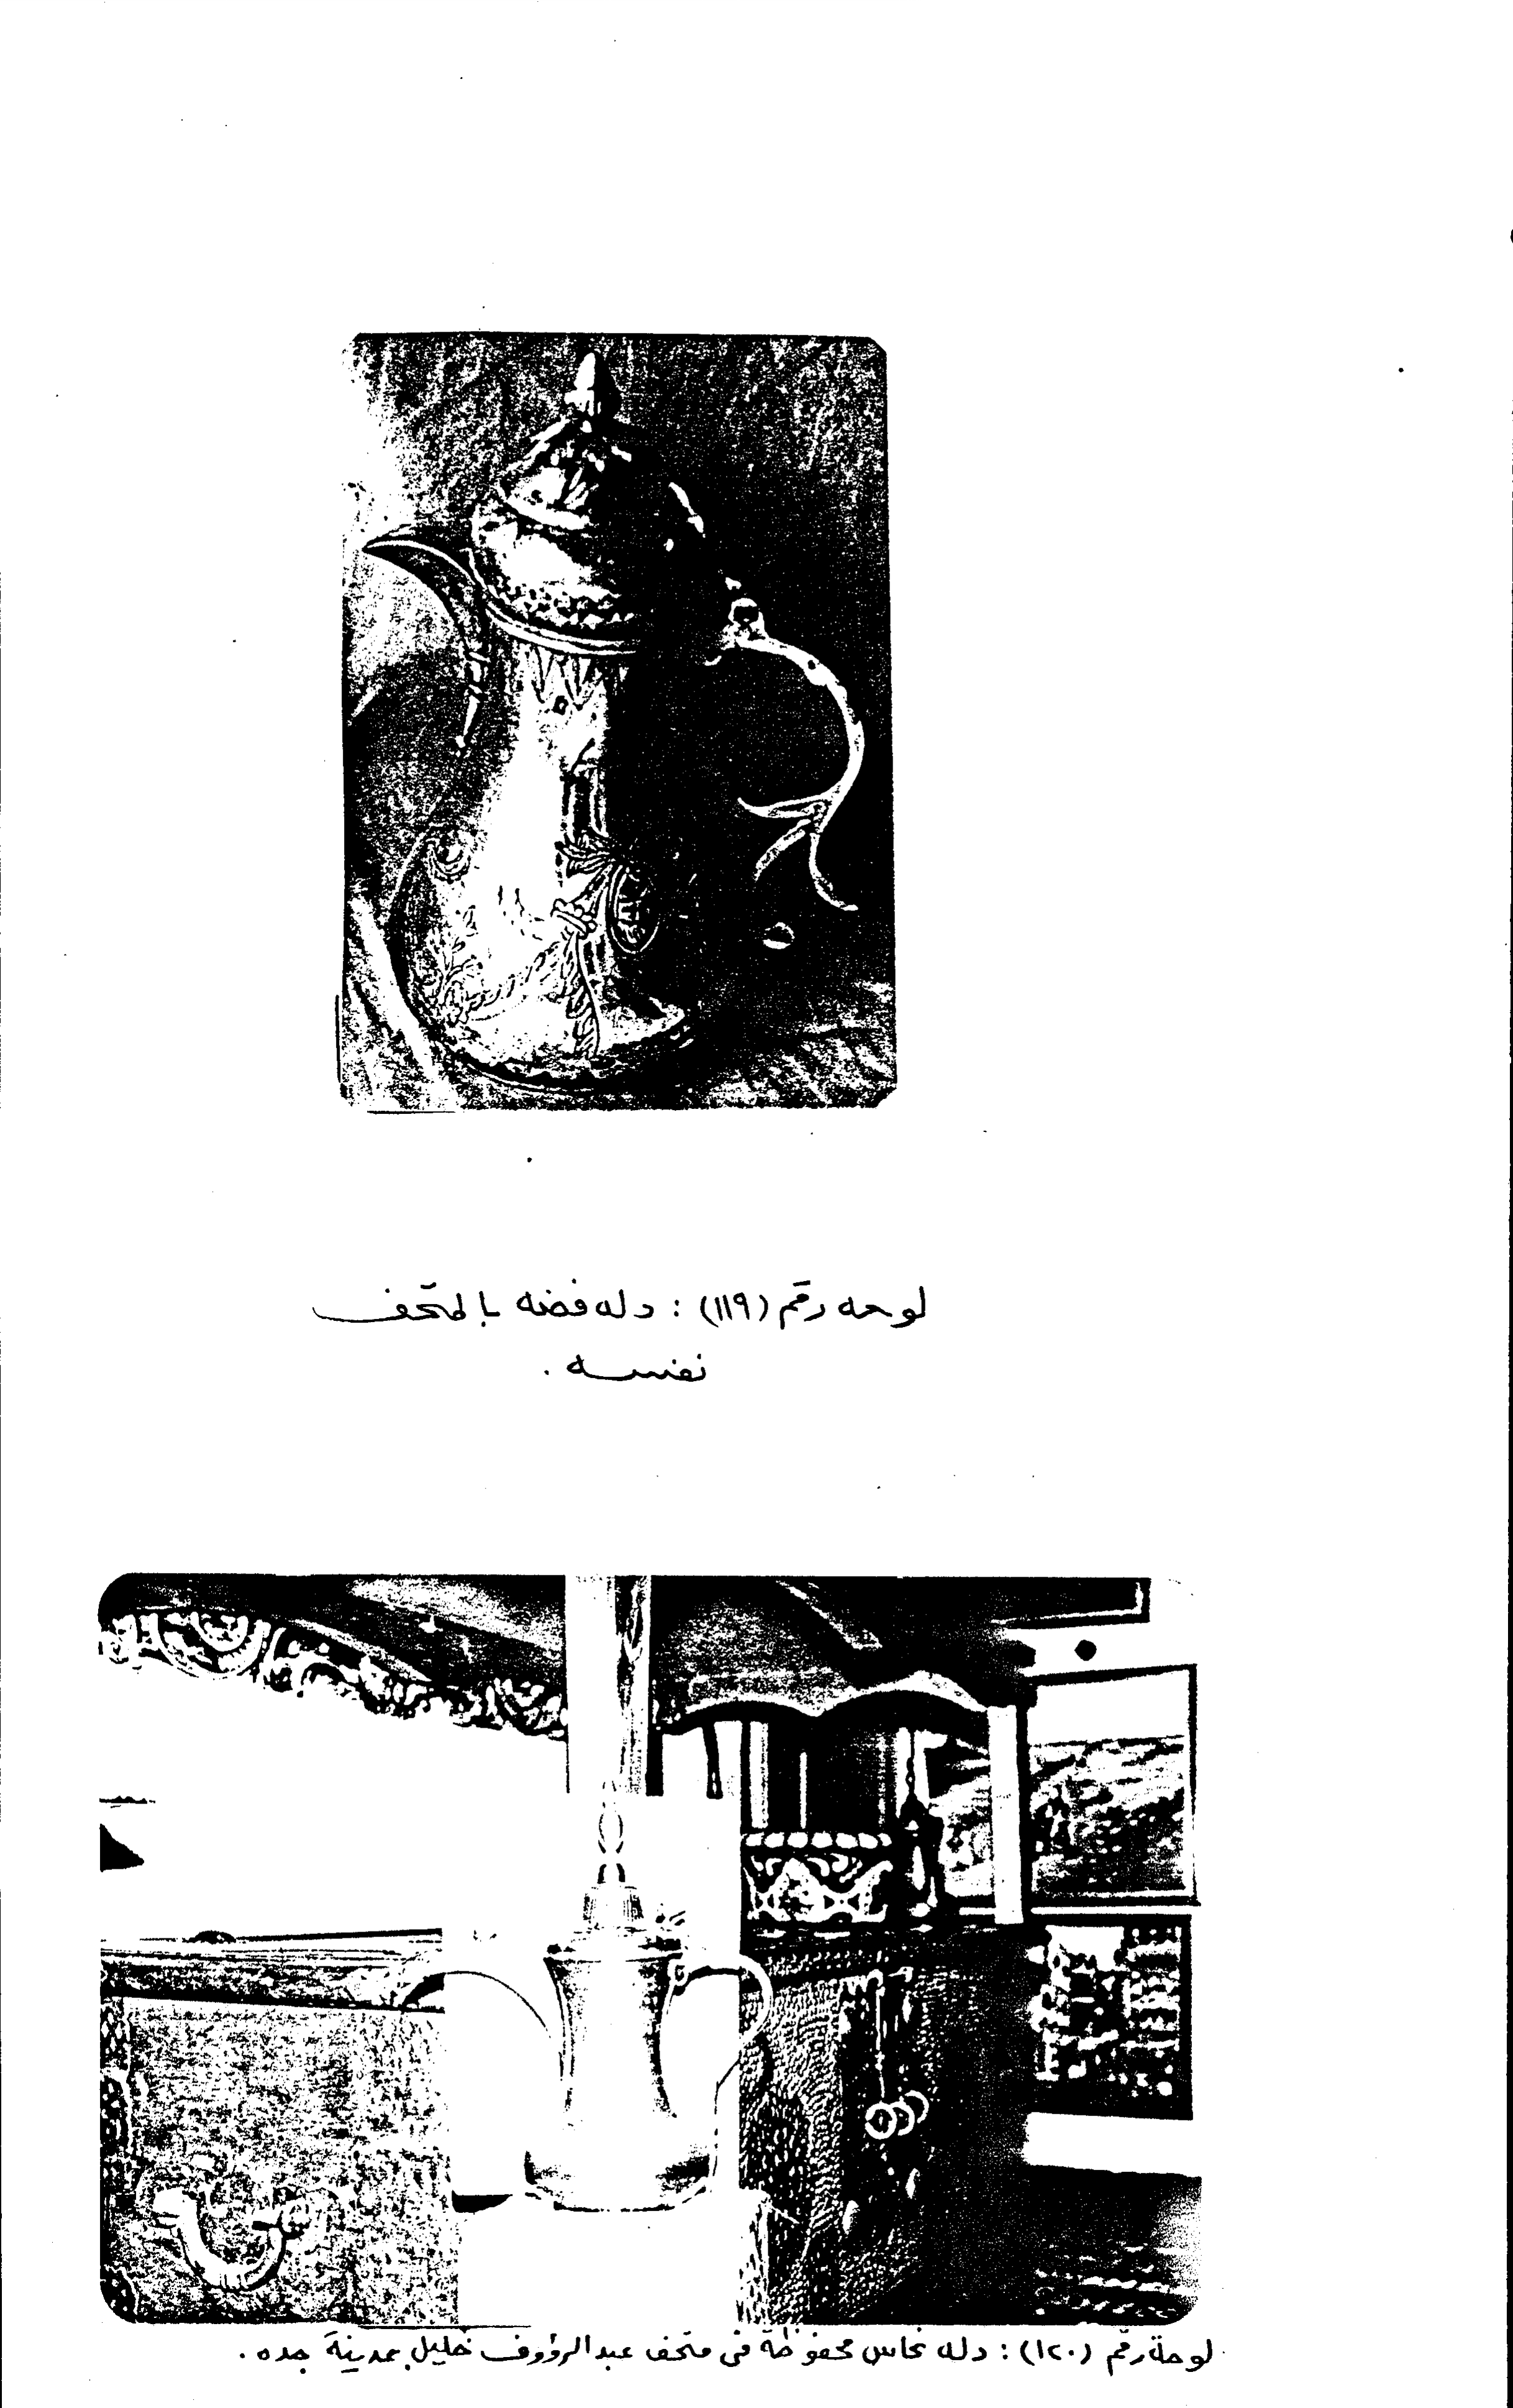 لوحه رقم (١١٩) : دله فضه بالمتحف
نفسه .
لوحة رقم (١٢٠) : دله نحاس محفوظة في متحف عبدالرؤوف خليل بمدينة جده .